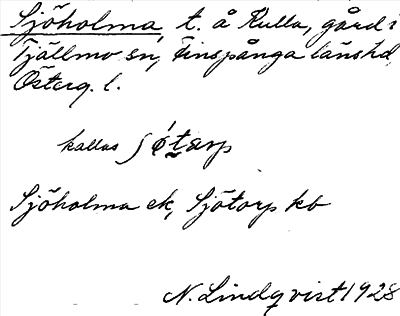 Sjöholma, t. å Kulla, gård i
Tjällmo sn, Finspånga länshd,
Österg. l.
kallas ʃǿtarp
Sjöholma ek, Sjötorp kb
N. Lindqvist 1928